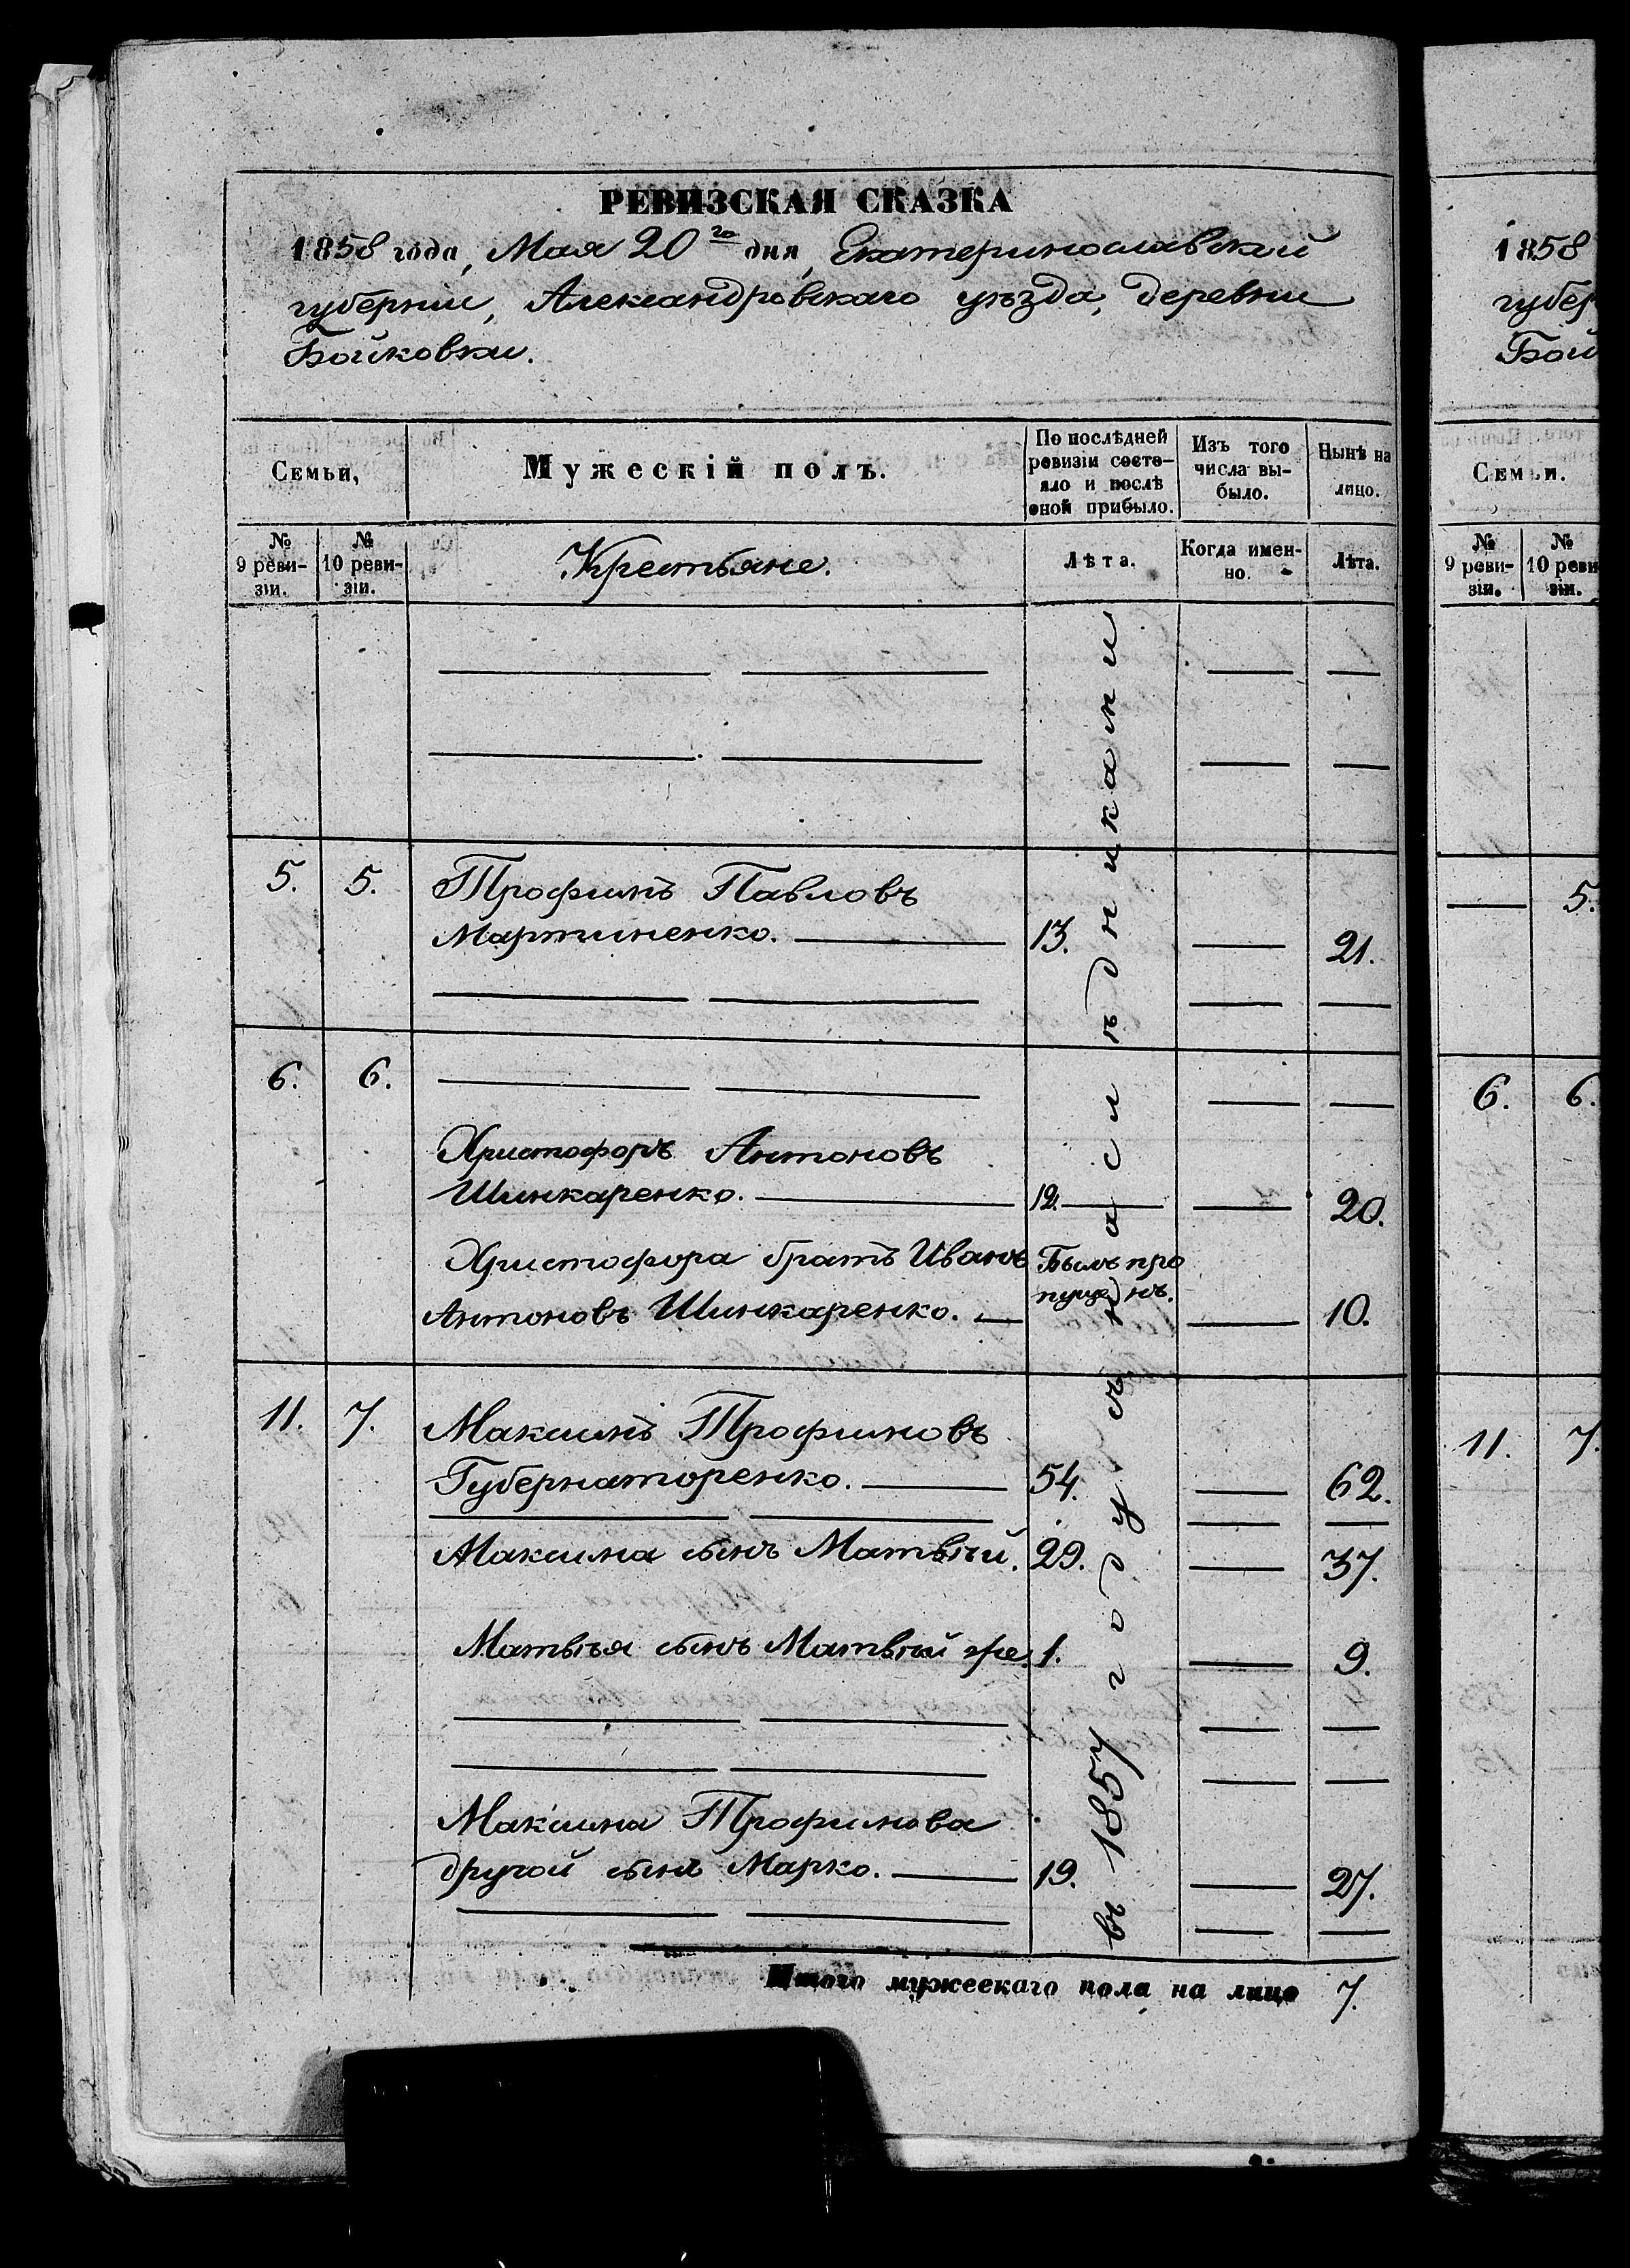 РЕВИЗСКАЯ СКАЗКА
1858 года, Мая 20го дня, Екатеринославской
губернии, Александровскаго уѣзда, деревни
Бойковки.
Семьи,
Мужескій полъ.
По послѣдней
ревизіи состо-
яло и послѣ
оной прибыло.
Изъ того
числа вы-
было.
Нынѣ на
лицо.
№
9 реви-
зіи.
№
10 реви-
зіи.
Крестьяне.
Лѣта.
Когда имен-
но.
Лѣта.
5. 5. Трофимъ Павловъ
Мартиненко. 13. 21.
6. 6.
Христофоръ Антоновъ
Шинкаренко. 12. 20.
Христофора братъ Иванъ Былъ про
Антоновъ Шинкаренко. пущенъ. 10.
11. 7. Максимъ Трофимовъ
Губернаторенко. 54. 62.
Максима сынъ Матвѣй. 29. 37.
Матвѣя сынъ Матвѣй же. 1. 9.
Максима Трофимова
другой сынъ Марко. 19. 27.
въ 1857 году съ наслѣдниками
Итого мужескаго пола на лицо 7.
1858
губер
Бой
Семьи.
№
9 реви-
зіи.
№
10 реви
зіи.
5.
6. 6.
11. 7.